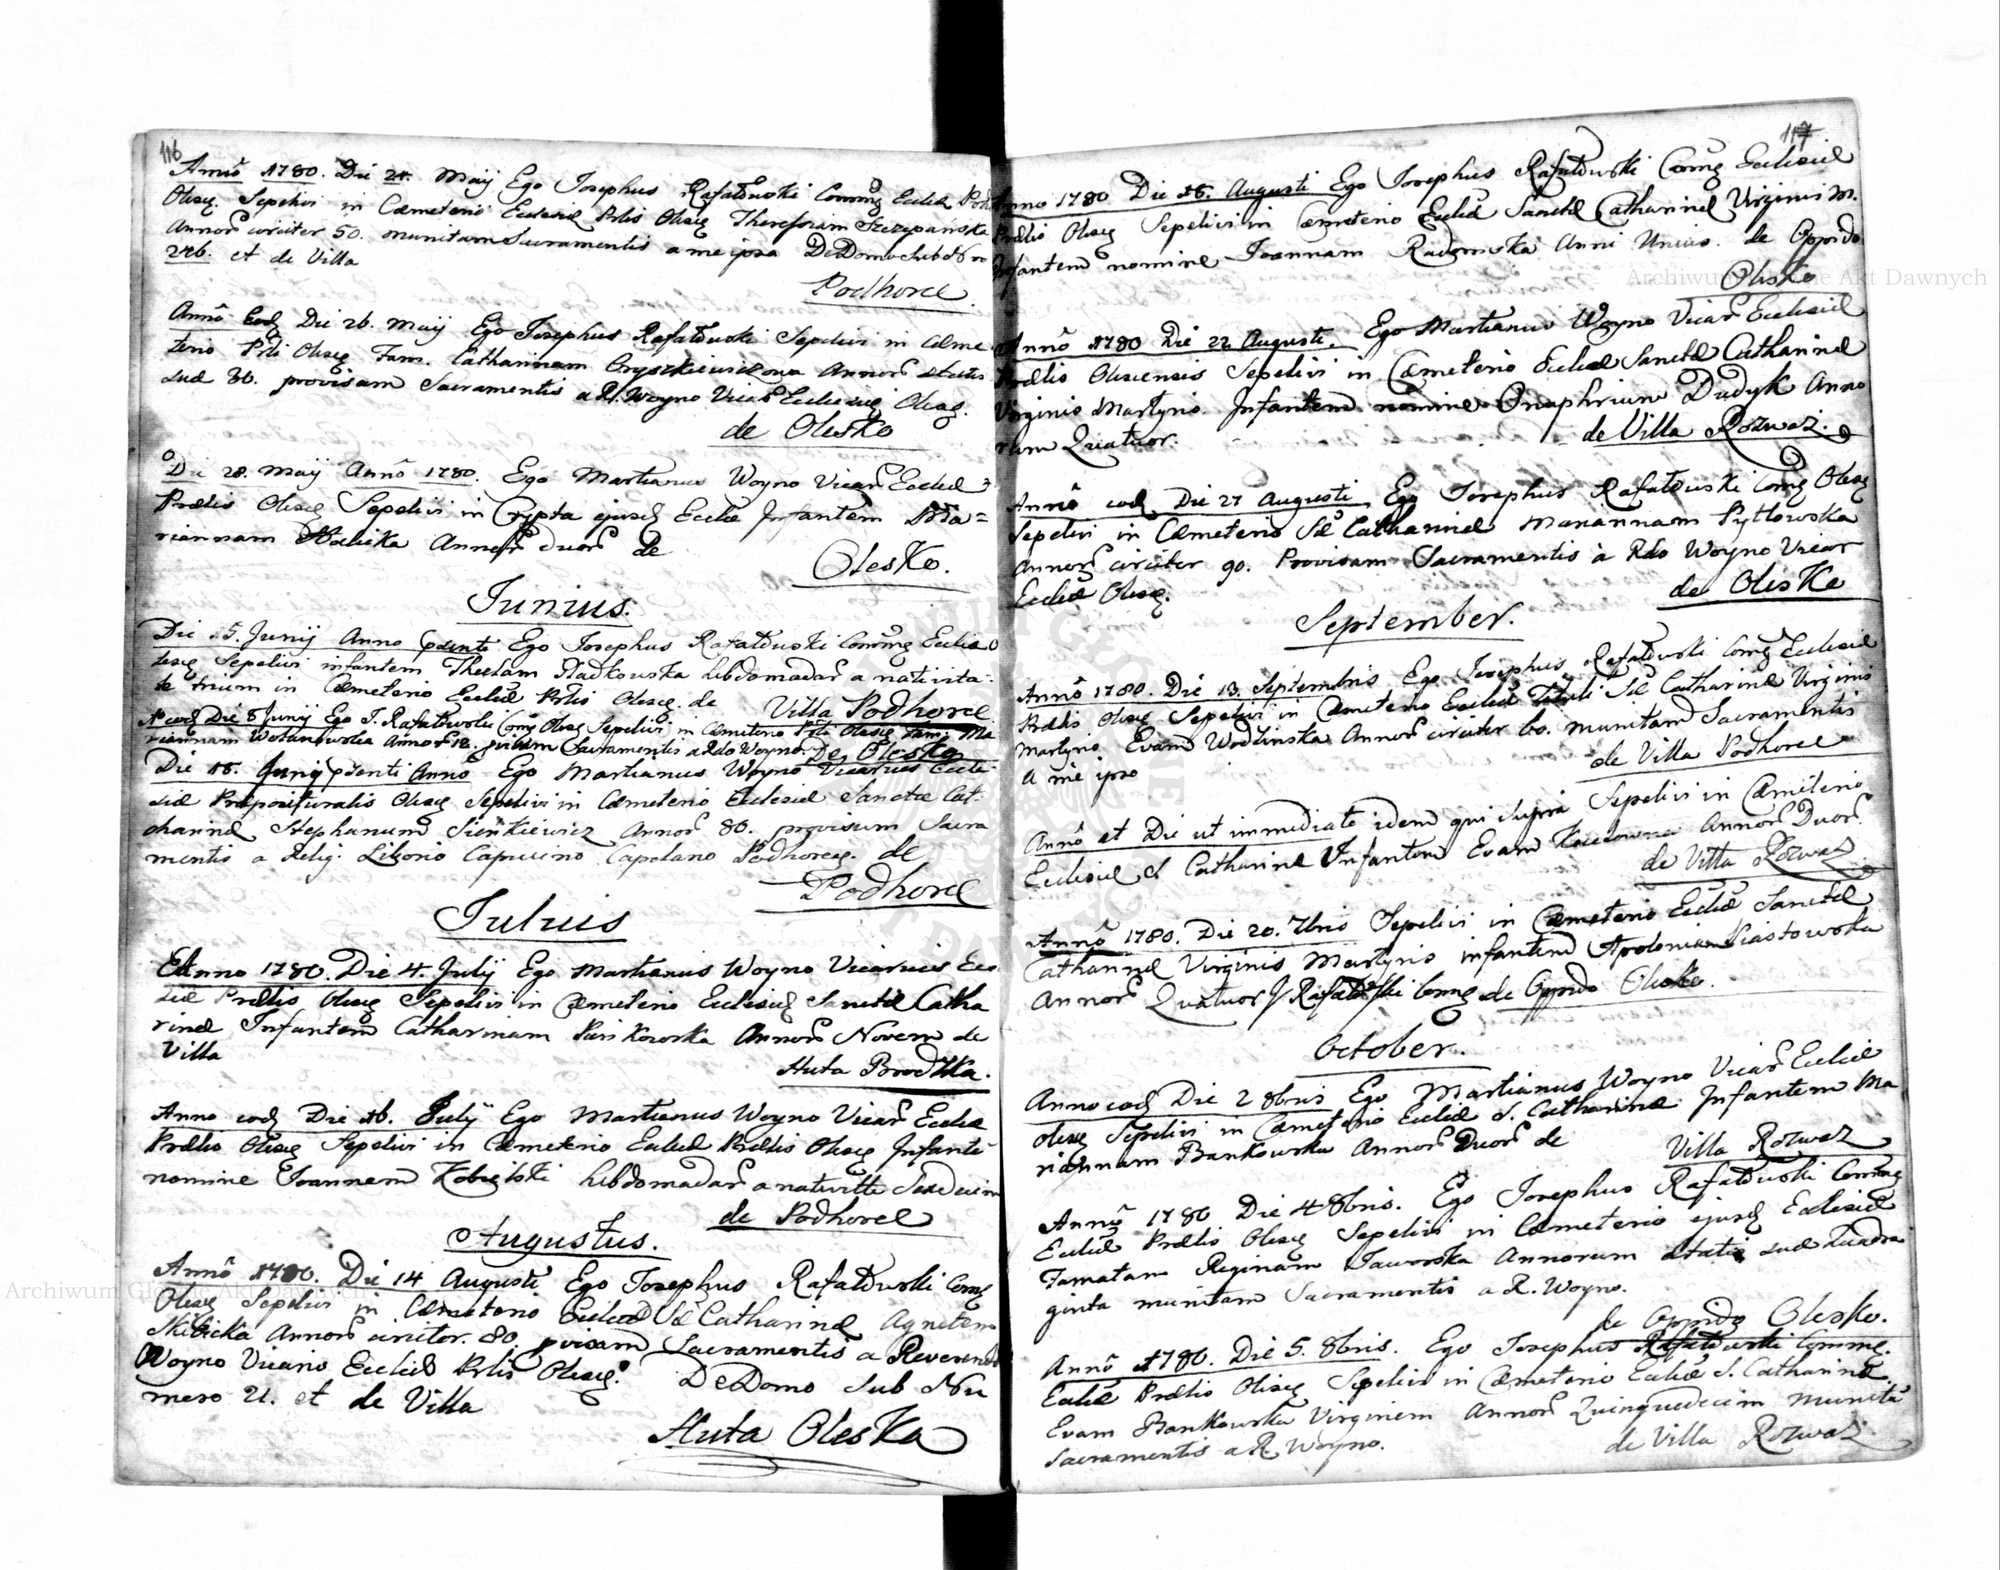 116
Annô 1780. Die 24. Maij Ego Josephus Rafałowski Comng Eccliæ Prlis
Olescg. Sepelivi in Cæmeterio Ecclesiæ Prlis Olescg Theresiam Szczepańska
Annorͫ circiter 50. munitam Sacramentis a me ipso De Domo sub No
246. et de Villa
Podhorce.
Annô Eodͫ Die 26. Maij Ego Josephus Rafałowski Sepelivi in Cæme
terio Prli Olescg Fam. Catharinam Annorͫ ætatis
suæ 30. provisam Sacramentis a R. Woyno Vicarͦ Ecclesiæ Olescg.
de Olesko
Die 28. Maij Annô 1780. Ego Martianus Woyno Vicarͦ Eccliæ
Prælis Olescg Sepelivi in Crypta ejusdͫ Eccliæ Infantem Ma=
riannam Annorͫ duorͫ de
Olesko.
Junius.
Die 5. Junij Anno pdente Ego Josephus Rafałowski Comng Eccliæ O
lescg Sepelivi infantem Theclam Sładkowska hebdomadarͫ a nativita
te trium in Cæmeterio Eccliæ Prlis Olescg. de Villa Podhorce
Aô eodͫ Die 8 Junij Ego J. Rafałowski Comng Olescg Sepelivi in Cæmeterio Prli Olescg Fam. Ma
riannam Annorͫ 12. pvisam Sacramentis a Rdo Woyno. De Olesko
Die 18. Junij pdenti Annô Ego Martianus Woyno Vicarius Eccle
siæ Præpositurialis Olescg Sepelivi in Cæmeterio Ecclesiæ Sanctæ Cat-
tharinæ Stephanum Sieńkiewicz Annorͫ 80. provisum Sacra
mentis a Relig. Liborio Capucino Capelano Podhorceg. de
Podhorce
Julius
Anno 1780. Die 4. Julij Ego Martianus Woyno Vicarius Ecc
siæ Prælis Olescg Sepelivi in Cæmeterio Ecclesiæ Sanctæ Catha
rinæ Infantem Catharinam Annorͫ Novem de
Villa
Huta Brodzka.
Anno eodͫ Die 16. Julij Ego Martianus Woyno Vicarͦ Eccliæ
Prælis Olescg Sepelivi in Cæmeterio Eccliæ Prælis Olescg Infante
nomine Joannem Kobielski hebdomadarͫ a nativitte Sexdecim
de Podhorce
Augustus.
Annô 1780. Die 14 Augusti Ego Josephus Rafałowski Comg
Olescg Sepelivi in Cæmeterio Eccliæ Sæ Catharinæ Agnetem
Skibicka Annorͫ circiter. 80. pvisam Sacramentis a Reverendo
Woyno Vicario Eccliæ Prlis Olescg. De Domo sub Nu
mero 21. et de Villa
Huta Oleska
117
Anno 1780 Die 18. Augusti Ego Josephus Rafałowski Comng Ecclesiæ
Prælis Olescg Sepelivi in Cæmeterio Eccliæ Sanctæ Catharinæ Virginis M.
Infantem nomine Joannam Radomska Anni Unius. de Oppido
Olesko
Annô 1780 Die 22 Augusti. Ego Martianus Woyno Vicarͦ Ecclesiæ
Prælis Olescensis Sepelivi in Cæmeterio Eccliæ Sanctæ Catharinæ
Virginis Martyris. Infantem nomine Onuphrium Dudyk Anno
rum Quatuor. de Villa Rozwaz.
Annô eodͫ Die 27 Augusti Ego Josephus Rafałowski Comng Olescg
Sepelivi in Cæmeterio Sæ Catharinæ Mariannam Pytlowska
Annorͫ circiter 90. Provisam Sacramentis à Rdo Woyno Vicar
Eccliæ Olescg. de Olesko
September.
Annô 1780. Die 13. Septembris Ego Josephus Rafałowski Comng Ecclesiæ
Prælis Olescg Sepelivi in Cæmeterio Eccliæ Tituli Sæ Catharinæ Virginis
Martyris Evam Wodlinska Annorͫ circiter 60. munitam Sacramentis
a me ipso de Villa Podhorce
Annô et Die ut immediate idem qui supra Sepelivi in Cæmeterio
Ecclesiæ S Catharinæ Infantem Evam Annorͫ Duorͫ
de Villa Rozwaz
Annô 1780. Die 20. 7bris Sepelivi in Cæmeterio Eccliæ Sanctæ
Catharinæ Virginis Martyris infantem Apoloniam Piastowska
Annorͫ Quatuor J Rafałoski Comng de Oppido Olesko.
October.
Anno eodͫ Die 2 8bris Ego Martianus Woyno Vicarͦ Eccliæ
Olescg Sepelivi in Cæmeterio Eccliæ S. Catharinæ Infantem Ma
riannam Bankowska Annorͫ Duorͫ de Villa Rozwaz
Annô 1780 Die 4 8bris. Ego Josephus Rafałowski Commng
Eccliæ Prælis Olescg Sepelivi in Cæmeterio ejusdͫ Ecclesiæ
Famatam Reginam Jaworska Annorum ætatis suæ Quadra
ginta munitam Sacramentis a R. Woyno.
de Oppido Olesko.
Annô 1780. Die 5. 8bris. Ego Josephus Rafałowski Comme.
Eccliæ Prælis Olescg Sepelivi in Cæmeterio Eccliæ S. Catharinæ
Evam Bankowska Virginem Annorͫ Quinquedecim munita
Sacramentis a R. Woyno. de Villa Rozwaz
Archiwum Główne Akt Dawnych
Archiwum Główne Akt Dawnych